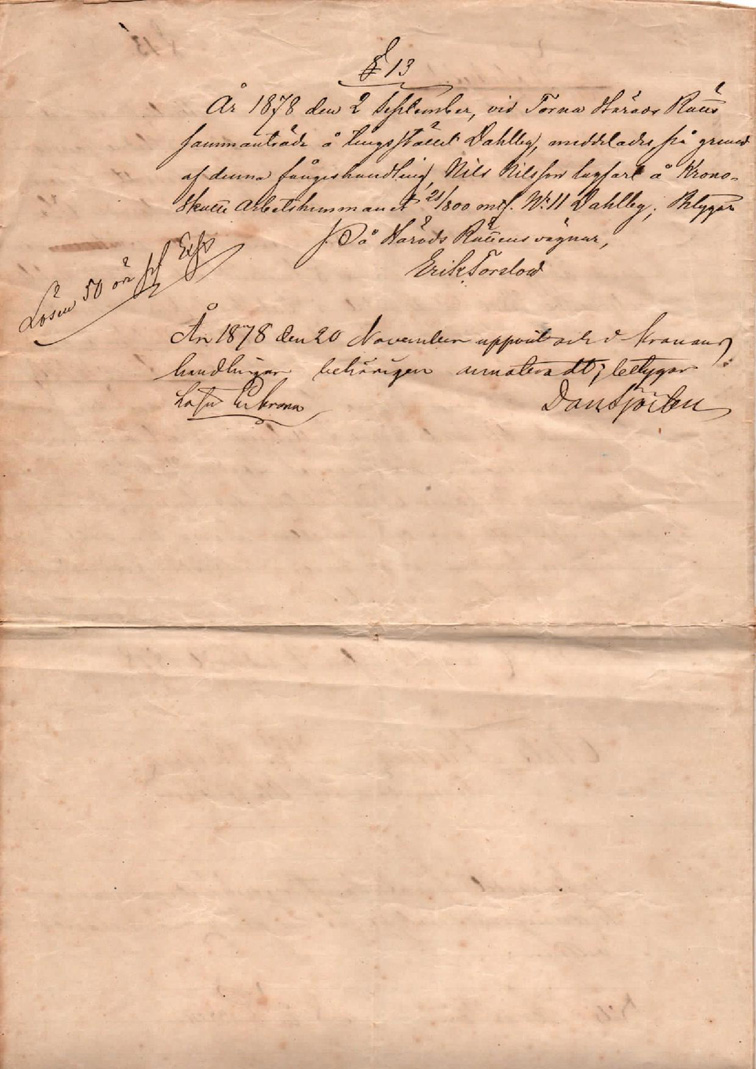 § 13
År 1878 den 2 September, vid Torna Härads Rätts
sammanträde å tingsstället Dahlby, meddelades på grund
af denna fångeshandling Nils Nilsson lagfart å Krono-
Skatte Arbetshemmanet 21/800 mtl. No 11 Dahlby; Betygar
På Härads Rättens vägnar,
Erik Torslow
Lösen 50 öre
År 1878 den 20 November uppvist och i
handlingar behörigen betygar
Lösen En krona